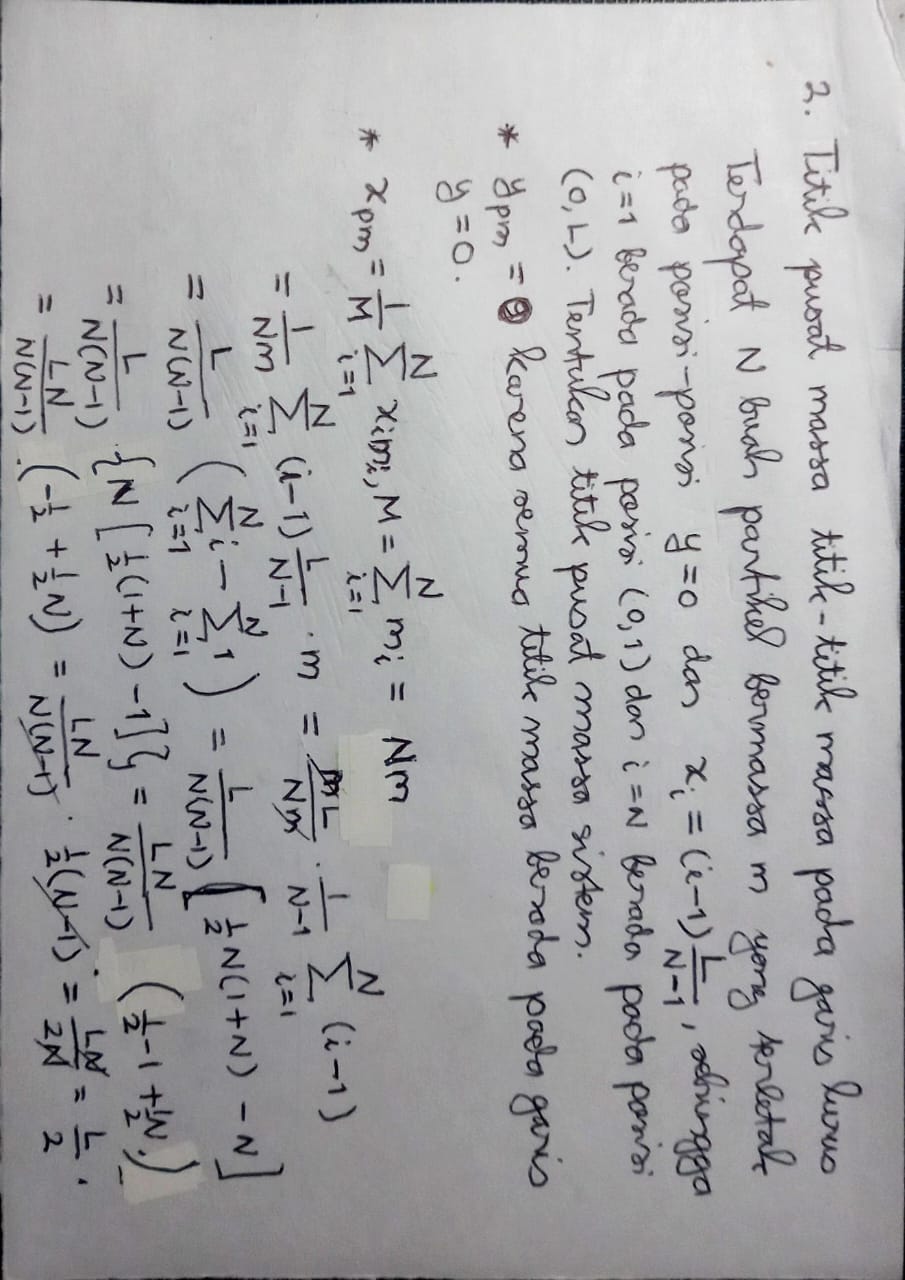 2. Titik pusat massa titik-titik massa pada garis lurus
Terdapat N buah partikel bermassa m yang terletak
pada posisi-posisi y=0 dan xᵢ = (i-1) L/(N-1), sehingga
i=1 berada pada posisi (0,1) dan i=N berada pada posisi
(0,L). Tentukan titik pusat massa sistem.
* y_pm = 0 karena semua titik massa berada pada garis
y=0.
* x_pm = 1/M Σ_{i=1}^{N} xᵢmᵢ, M = Σ_{i=1}^{N} mᵢ = Nm
= 1/(Nm) Σ_{i=1}^{N} (i-1) L/(N-1) · m = mL/(Nm) · 1/(N-1) Σ_{i=1}^{N} (i-1)
= L/(N(N-1)) (Σ_{i=1}^{N} i - Σ_{i=1}^{N} 1) = L/(N(N-1)) [½N(1+N) - N]
= L/(N(N-1)) {N[½(1+N) -1]} = LN/(N(N-1)) (½ -1 + ½N)
= LN/(N(N-1)) · (-½ + ½N) = LN/(N(N-1)) · ½(N-1) = LN/(2N) = L/2.